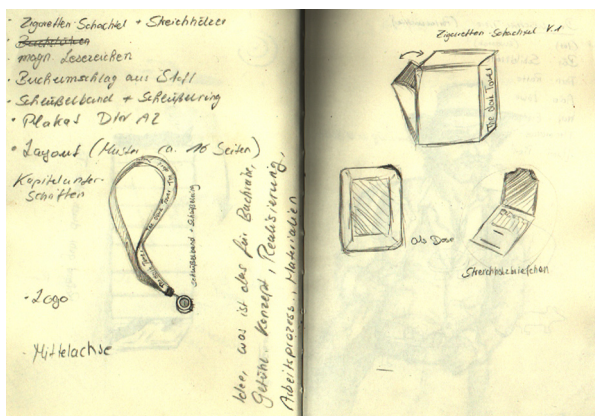 · Zigaretten-Schachtel + Streichhölzer
· magn. Lesezeichen
· Buchumschlag aus Stoff
· Schlüßelband + Schlüßelring
· Plakat Din A2
· Layout (Muster ca. 16 Seiten)
Kapitelunter-
schriften
· Logo
· Mittelachse
Schlüßelband + Schlüßelring
Idee, was ist das für Buchreihe,
Gefühle, Konzept, Realisierung,
Arbeitsprozess, Materialien
Zigaretten-Schachtel V.1
The dark Tower
als Dose
Streichholzbriefchen